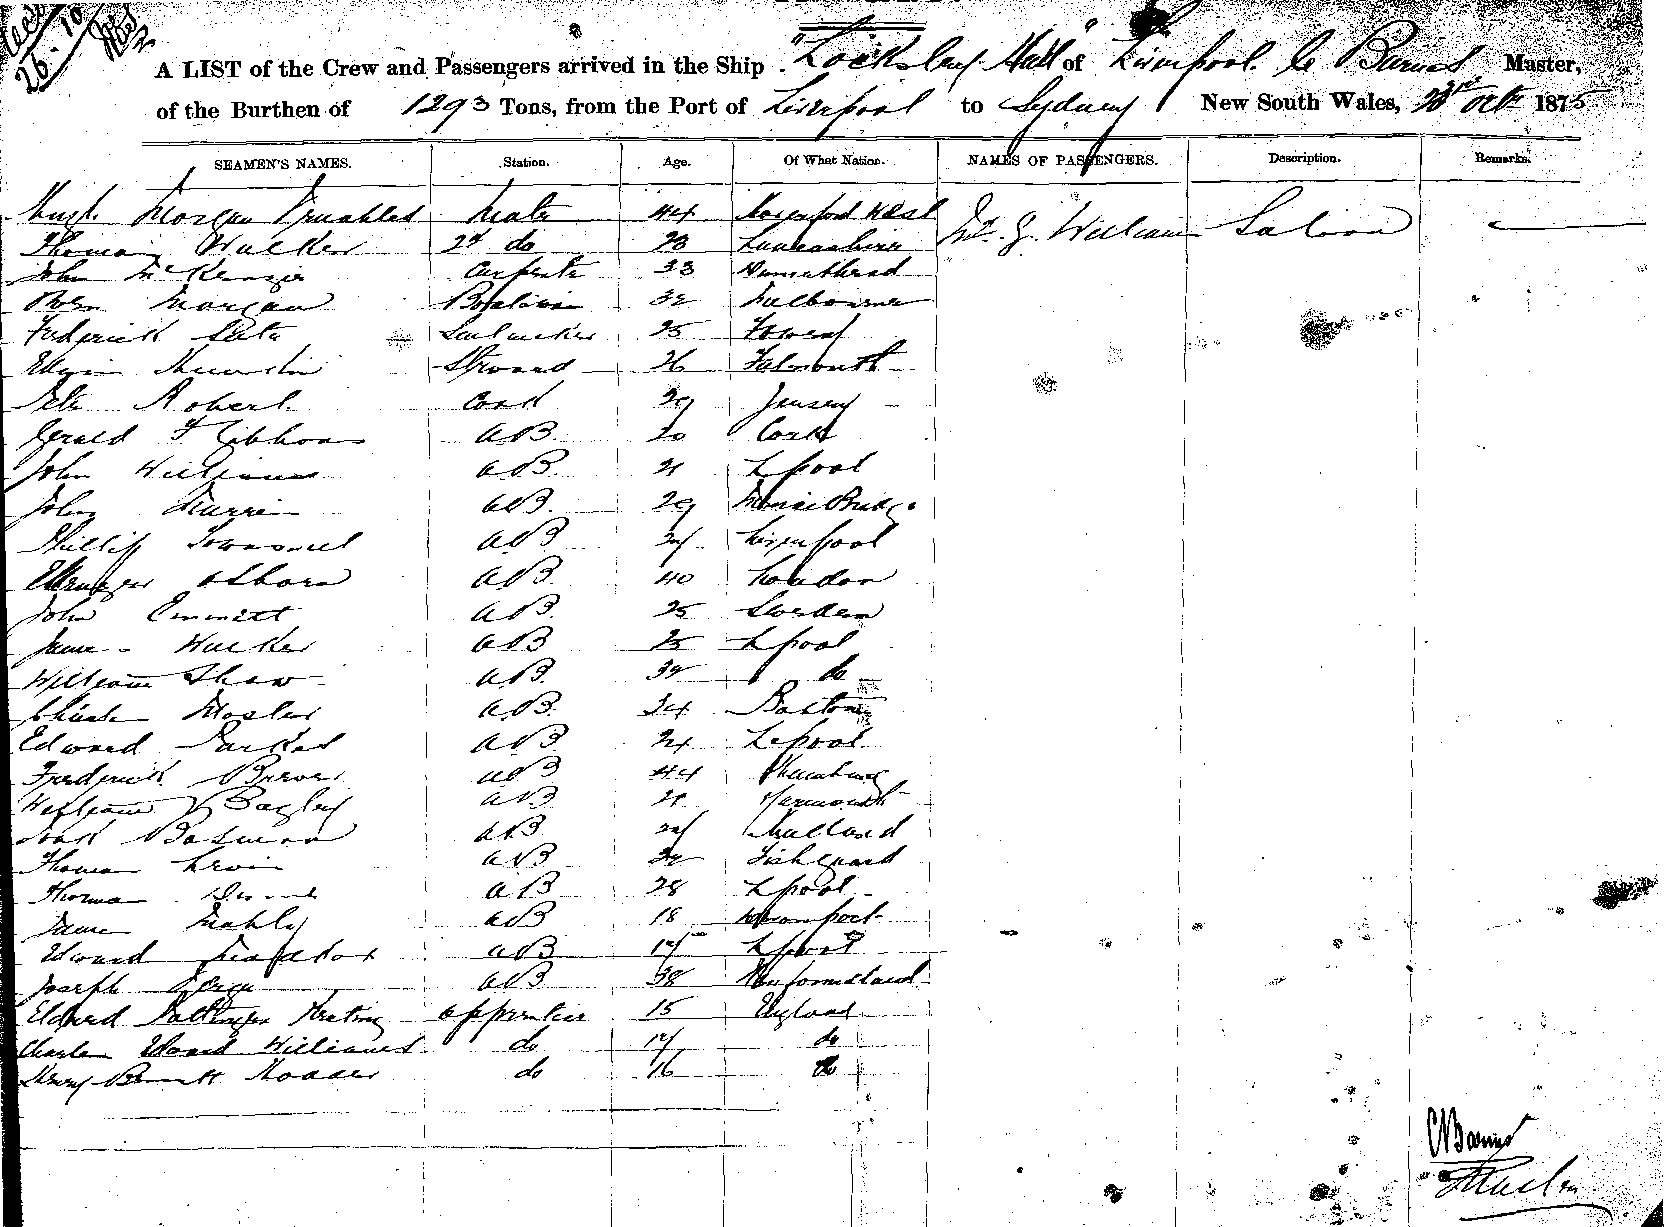 26-10
A LIST of the Crew and Passengers arrived in the Ship "Locksley Hall" of Liverpool C Barnes Master,
of the Burthen of 1293 Tons, from the Port of Liverpool to Sydney New South Wales, 23rd Octr 1875
SEAMEN'S NAMES. Station. Age. Of What Nation. NAMES OF PASSENGERS. Description. Remarks.
Hugh Morgan Mate 44 Haverford West Mr. G. William Saloon
Thomas Walker 2d do 28 Lancashire
John McKenzie Carpenter 33
Owen Morgan 32 Melbourne
Frederick Sailmaker 25 Fowey
Edwin Steward 26 Falmouth
Peter Robert Cook 29 Jersey
Gerald F Gibbons AB 20 Cork
John Williams AB 21 Lpool
John AB. 29
Phillip Townsend AB 24 Liverpool
Ebenezer Osborn AB 40 London
John Emmett AB 25 Sweden
James Walker AB 25 Lpool
William Shaw AB 32 do
Charles Mosler AB 24 Boston
Edward Parkes AB 24 Lpool
Frederick AB 44 Hamburg
William J Bagley AB 21 Yarmouth
AB 24
Thomas Irvin AB 32 Fishguard
Thomas AB 28 Lpool
James Mahly AB 18
Edward AB 17 Lpool
Joseph AB 38 Newfoundland
Edward Keating apprentice 15 England
Charles Edward Williams do 17 do
Henry Bennett do 16 do
C Barnes
Master